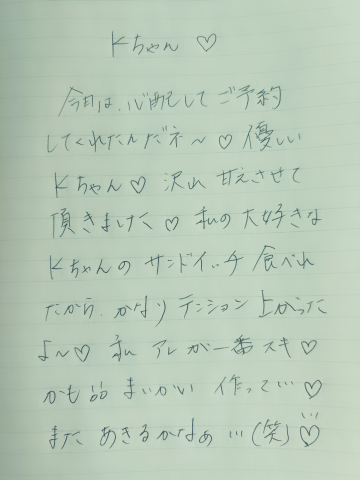 Kちゃん ♡
今日は、心配してご予約
してくれたんだネ～♡ 優しい
Kちゃん♡ 沢山 甘えさせて
頂きました♡ 私の大好きな
Kちゃんの サンドイッチ 食べれ
たから、かなり テンション 上がった
よ～♡ 私 アレが一番スキ♡
かも 毎 まいかい 作って…♡
また あきるかなぁ …(笑)♡